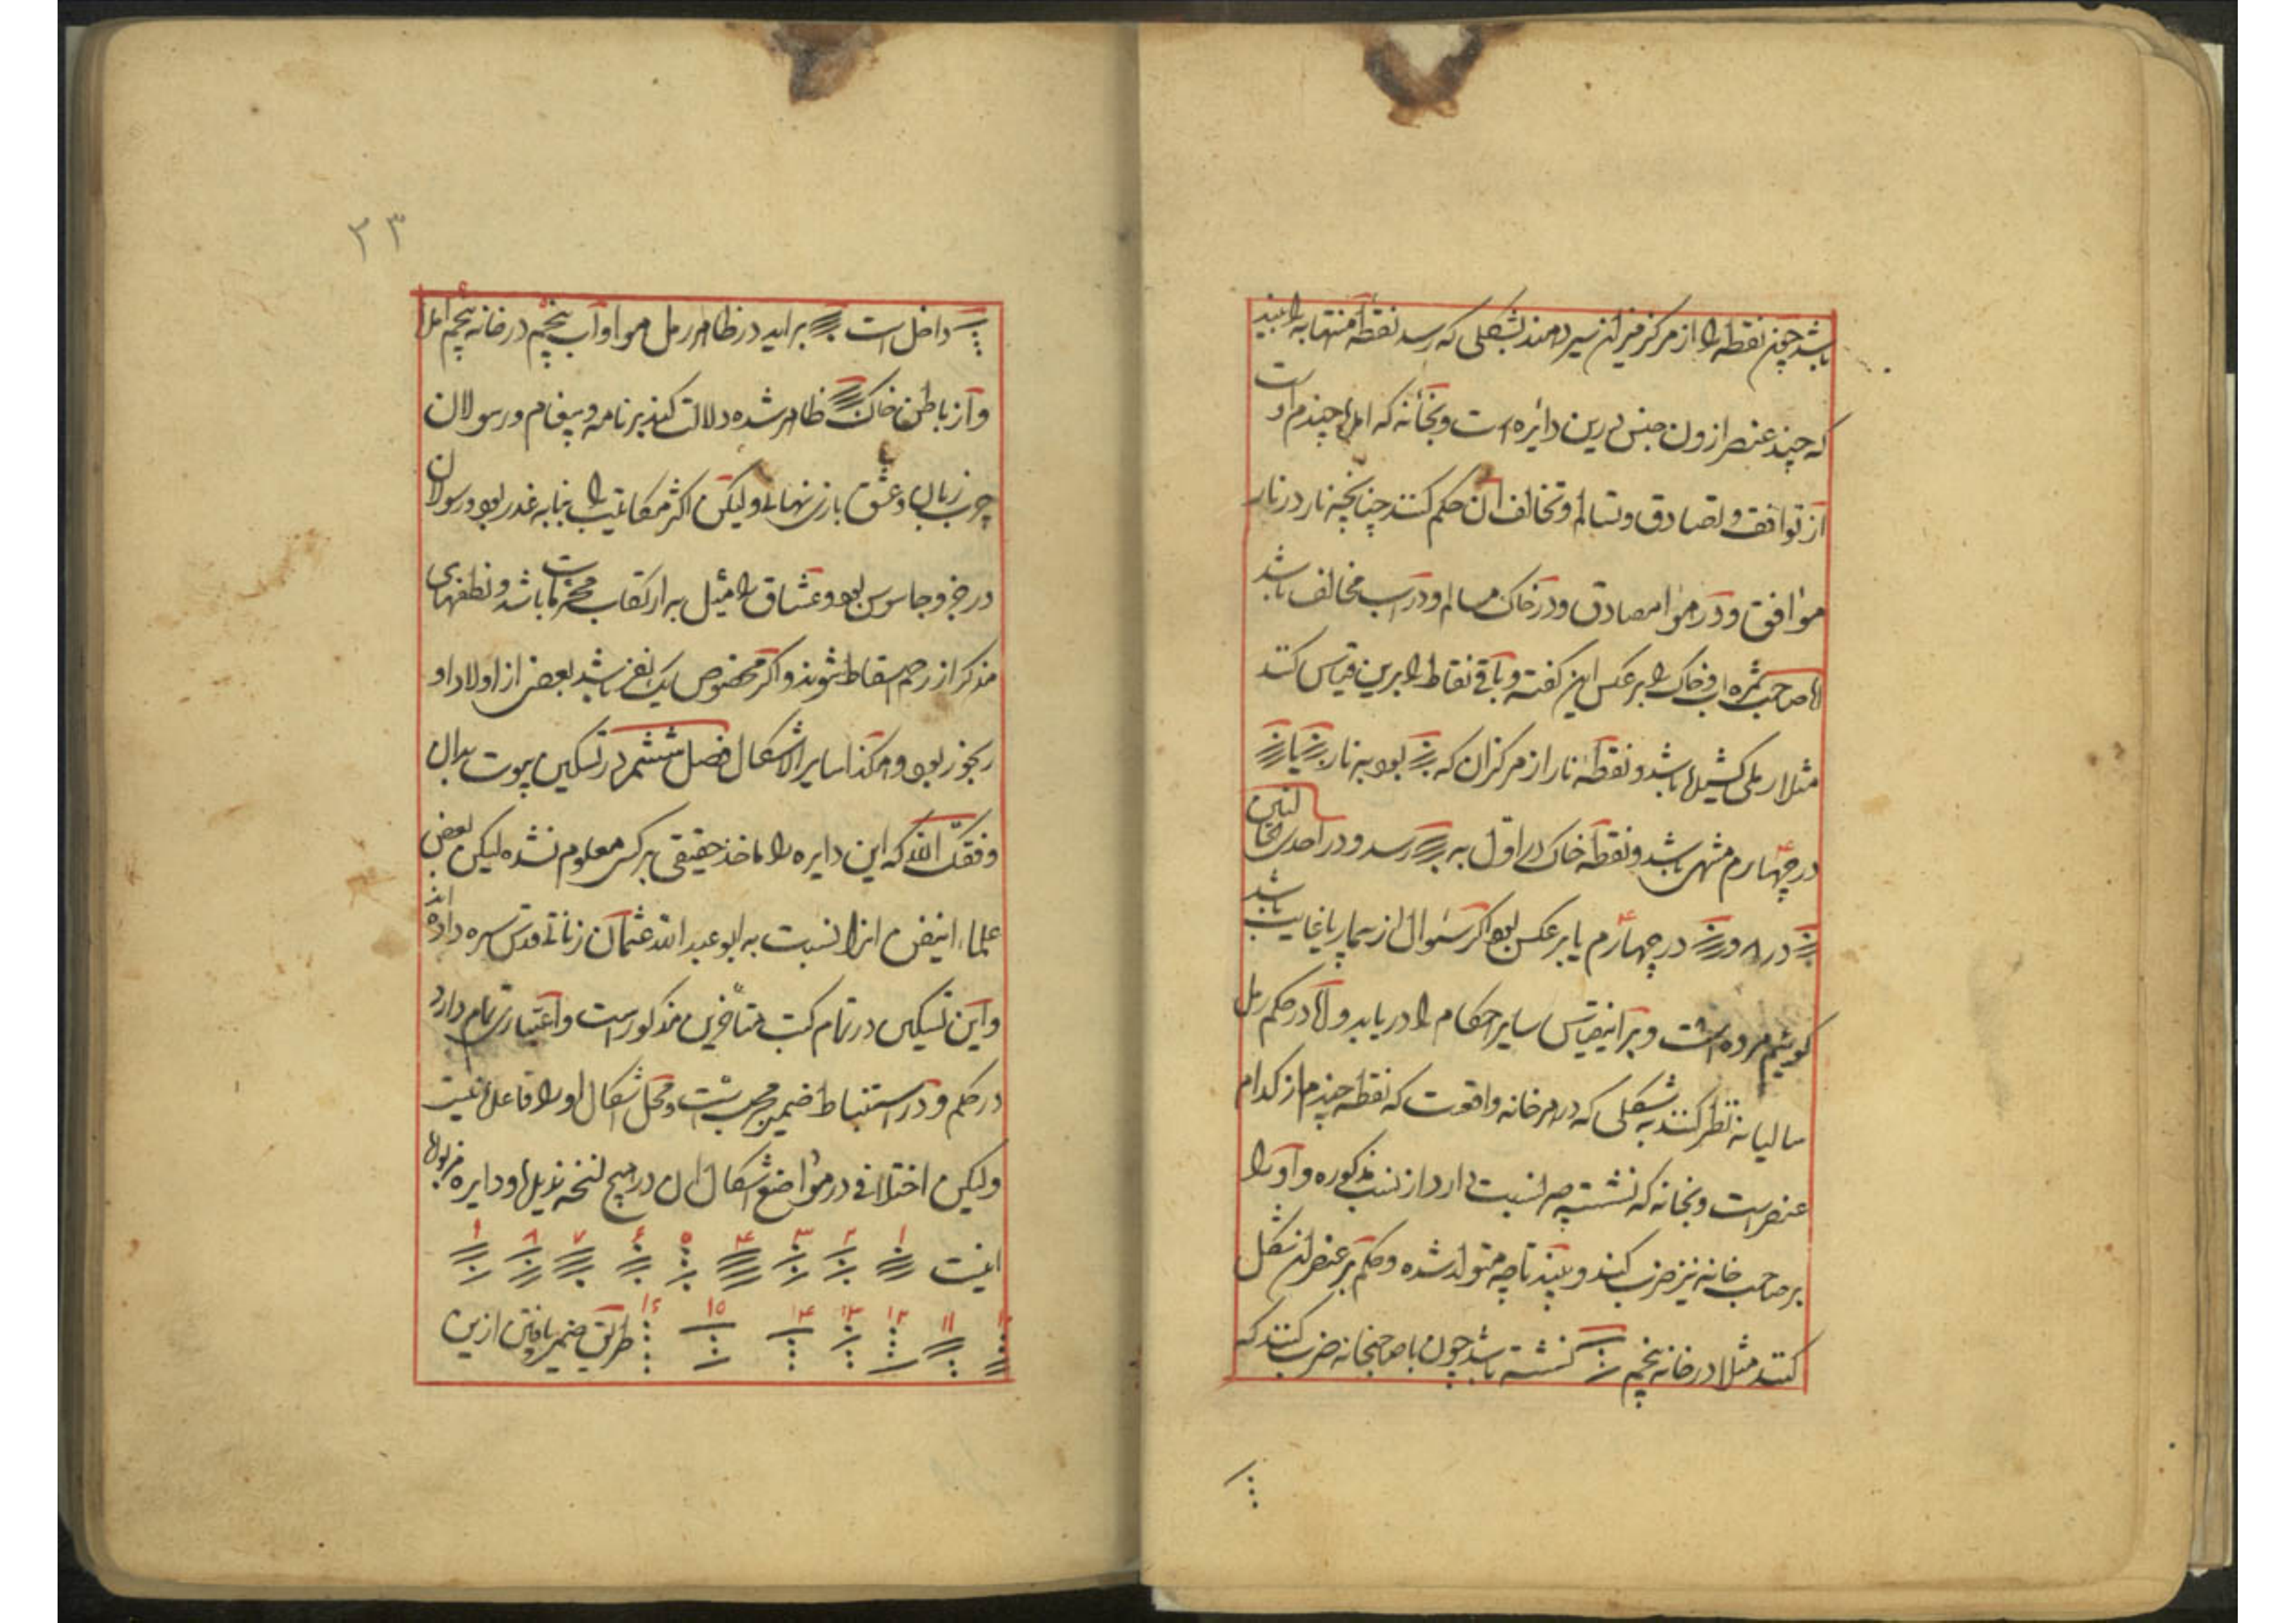 باشد چون نقطه را از مرکز میزان سیر دهند بشکلی که رسد نقطه منتها به را ببیند
که چند عنصر ازون جنس درین دائره است و بخانه که امد چندم اوست
از توافق و تصادق و تسالم و تخالف ان حکم کنند چنانچه نار در نار
موافق و در هوا مصادق و در خاک مسالم و در اب مخالف باشد
اما صاحب ثمره اب و خاک را برعکس این کفته و باقی نقاط را برین قیاس کنند
مثلا رملی کشیده باشد و نقطه نار از مرکز ان که بود به نار یا
در چهارم منتهی باشد و نقطه خاک در اول به رسد و در احدی
در ۸ و در چهارم یا برعکس بود اکر سئوال از بیمار یا غایب باشد
کوئیم مرده است و برانیقیاس سایر احکام را دریابد و اما در حکم رمل
سالیانه نظر کنند به شکلی که در هر خانه واقعست که نقطه چندم از کدام
عنصر است و بخانه که نشسته چه نسبت دارد از نسب مذکوره و او را
بر صاحب خانه نیز ضرب کنند و ببیند تا چه متولد شده و حکم بر عنصر ان شکل
کنند مثلا در خانه پنجم نشسته باشد چون با صاحبخانه ضرب کنند که
۲۳
داخل است براید در ظاهر رمل هوا و اب پنجم در خانه پنجم امد
و از باطن خاک ظاهر شده دلالت کند بر نامه و پیغام و رسولان
چرب زبان و عشق بازی نهانی و لیکن اکثر مکاتیب را بنا به غدر بود و رسولان
و جاسوس بود و عشاق را میل به ارتکاب محرمات باشد و نطفهای
مذکر از رحم اسقاط شوند و اکر مخصوص یک نفر باشد بعضی از اولاد او
رنجور بود و هکذا سایر الاشکال فصل ششم در تسکین بیوت بدان
وفقک الله که این دایره را ماخذ حقیقی بر کس معلوم نشده لیکن بعضی
علماء اینفن انرا نسبت به ابو عبد الله عثمان زناتی قدس سره داده اند
و این تسکین در تمام کتب متاخرین مذکور است و اعتباری تمام دارد
در حکم و در استنباط ضمیر مجرب است و محل اشکال او را قاعده نیست
و لیکن اختلافی در مواضع اشکال ان در هیچ نسخه ندیدم و دایره مزبوره
اینست ۱ ۲ ۳ ۴ ۵ ۶ ۷ ۸ ۹
۱۰ ۱۱ ۱۲ ۱۳ ۱۴ ۱۵ ۱۶ طریق ضمیر یافتن ازین